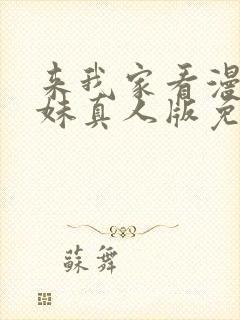 来我家看漫
妹真人版免
蘇舞